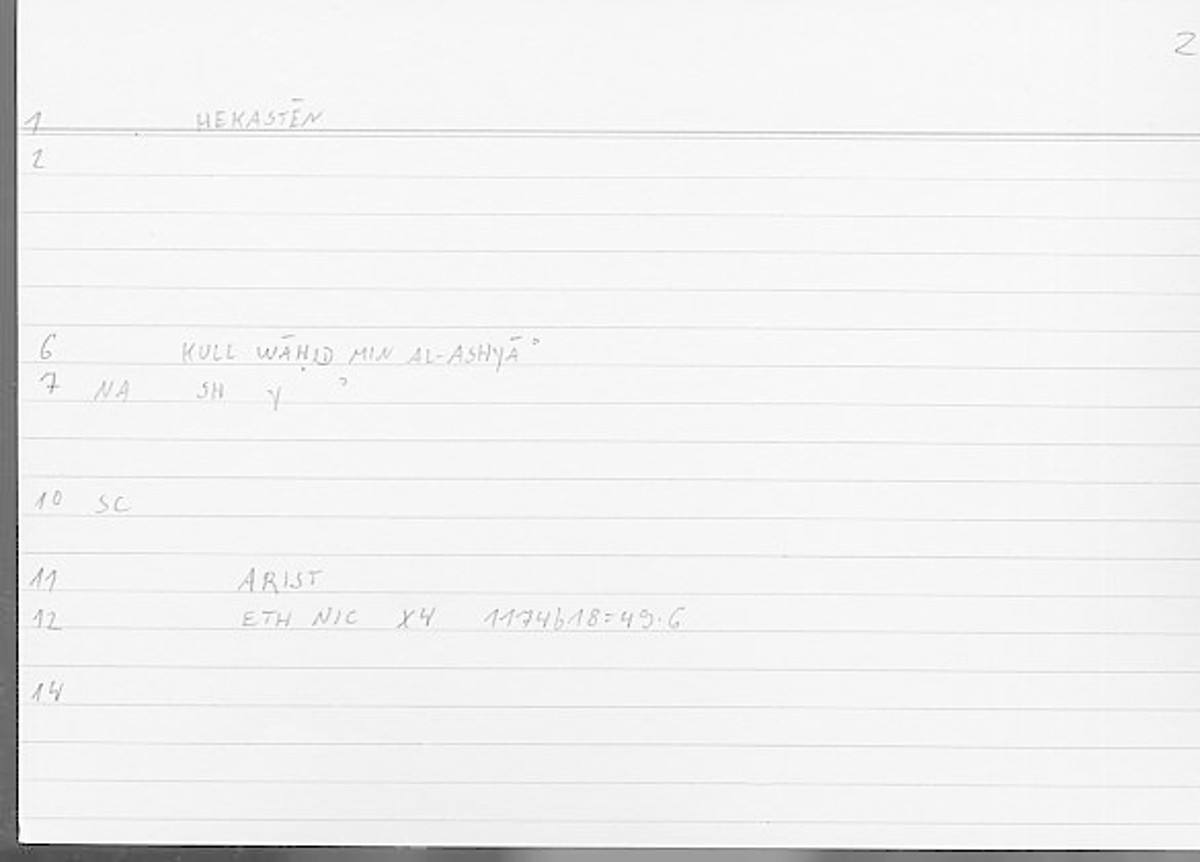 2
1 HEKASTĒN
2
6 KULL WĀḤID MIN AL-ASHYĀʾ
7 NA SH Y ʾ
10 SC
11 ARIST
12 ETH NIC X4 1174b18=49.6
14